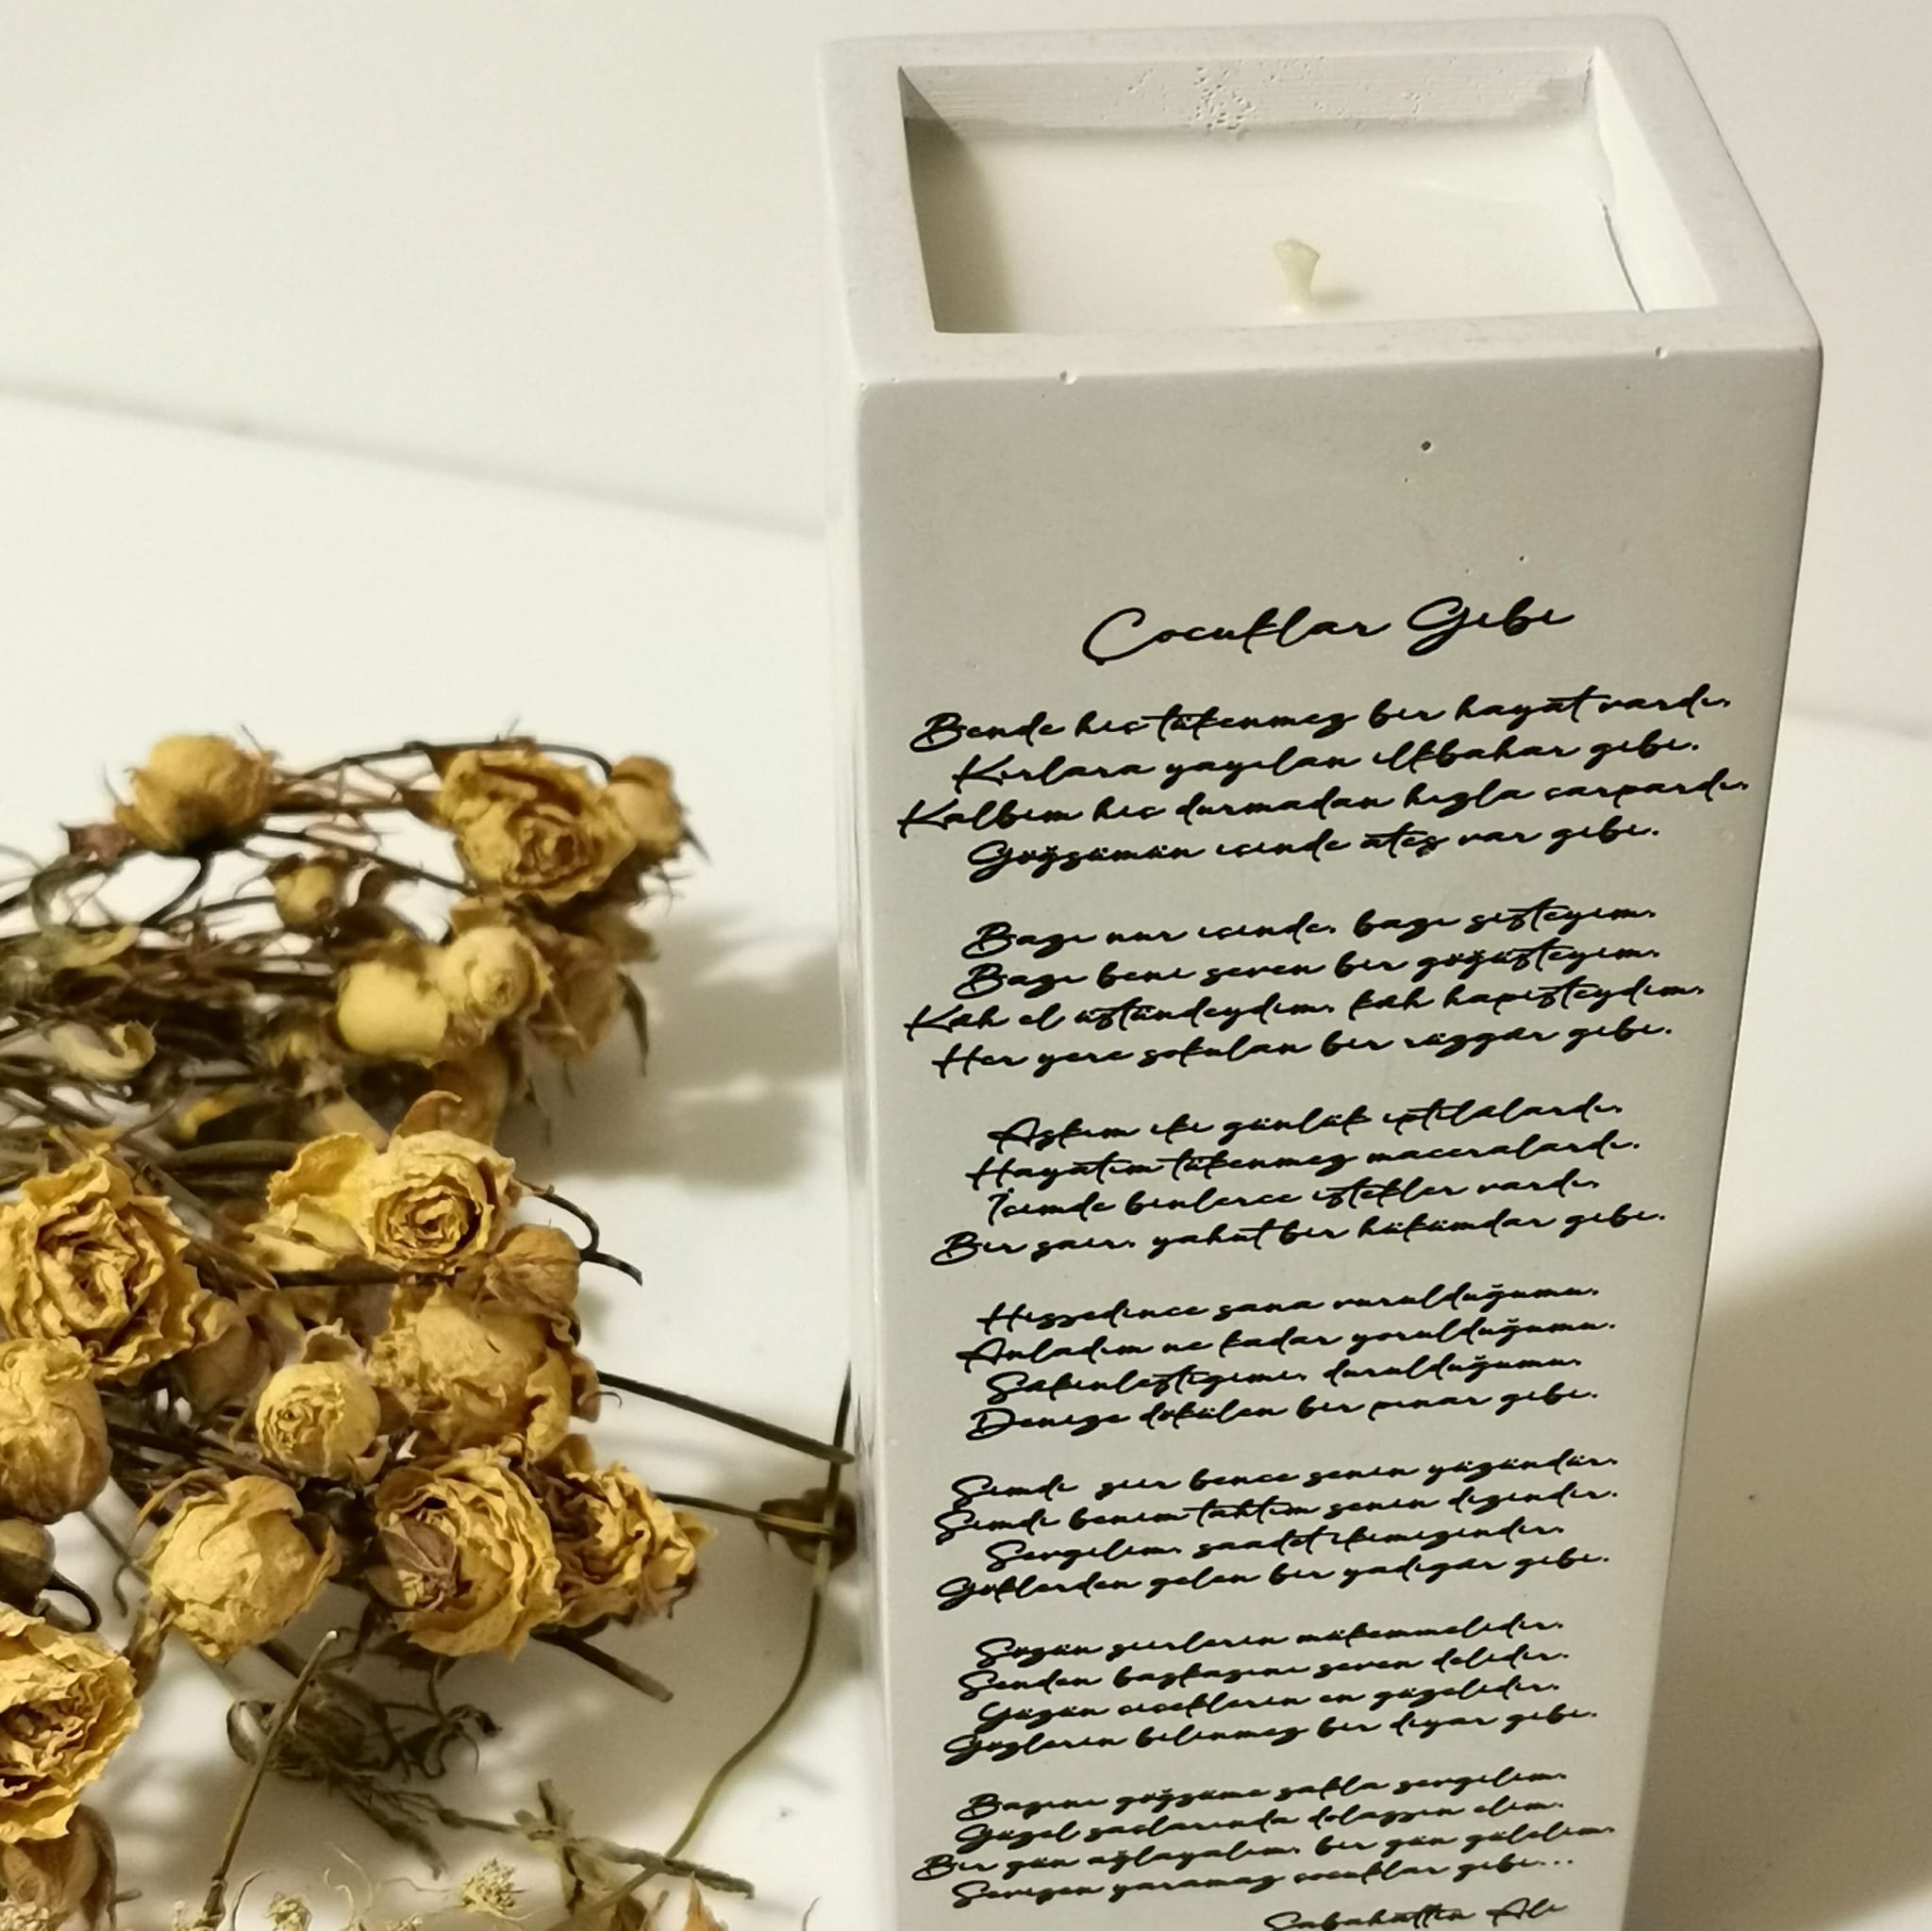 Çocuklar Gibi
Bende hiç tükenmez bir hayat vardı,
Kırlara yayılan ilkbahar gibi.
Kalbim hiç durmadan hızla çarpardı,
Göğsümün içinde ateş var gibi.
Bazı nur içinde, bazı sisteyim,
Bazı beni seven bir göğüsteyim,
Kâh el üstündeydim, kâh hapisteydim,
Her yere sokulan bir rüzgâr gibi.
Aşkım iki günlük iptilâlardı,
Hayatım tükenmez maceralardı.
İçimde binlerce istekler vardı,
Bir şair, yahut bir hükümdar gibi.
Hissedince sana vurulduğumu,
Anladım ne kadar yorulduğumu.
Sakinleştiğimi, durulduğumu,
Denize dökülen bir pınar gibi.
Şimdi şiir bence senin yüzündür,
Şimdi benim tahtım senin dizindir.
Sevgilim, saadet ikimizindir,
Göklerden gelen bir yadigâr gibi.
Sözün şiirlerin mükemmelidir,
Senden başkasını seven delidir.
Yüzün çiçeklerin en güzelidir,
Gözlerin bilinmez bir diyar gibi.
Başını göğsüme sakla sevgilim,
Güzel saçlarında dolaşsın elim.
Bir gün ağlayalım, bir gün gülelim,
Sevişen yaramaz çocuklar gibi...
Sabahattin Ali